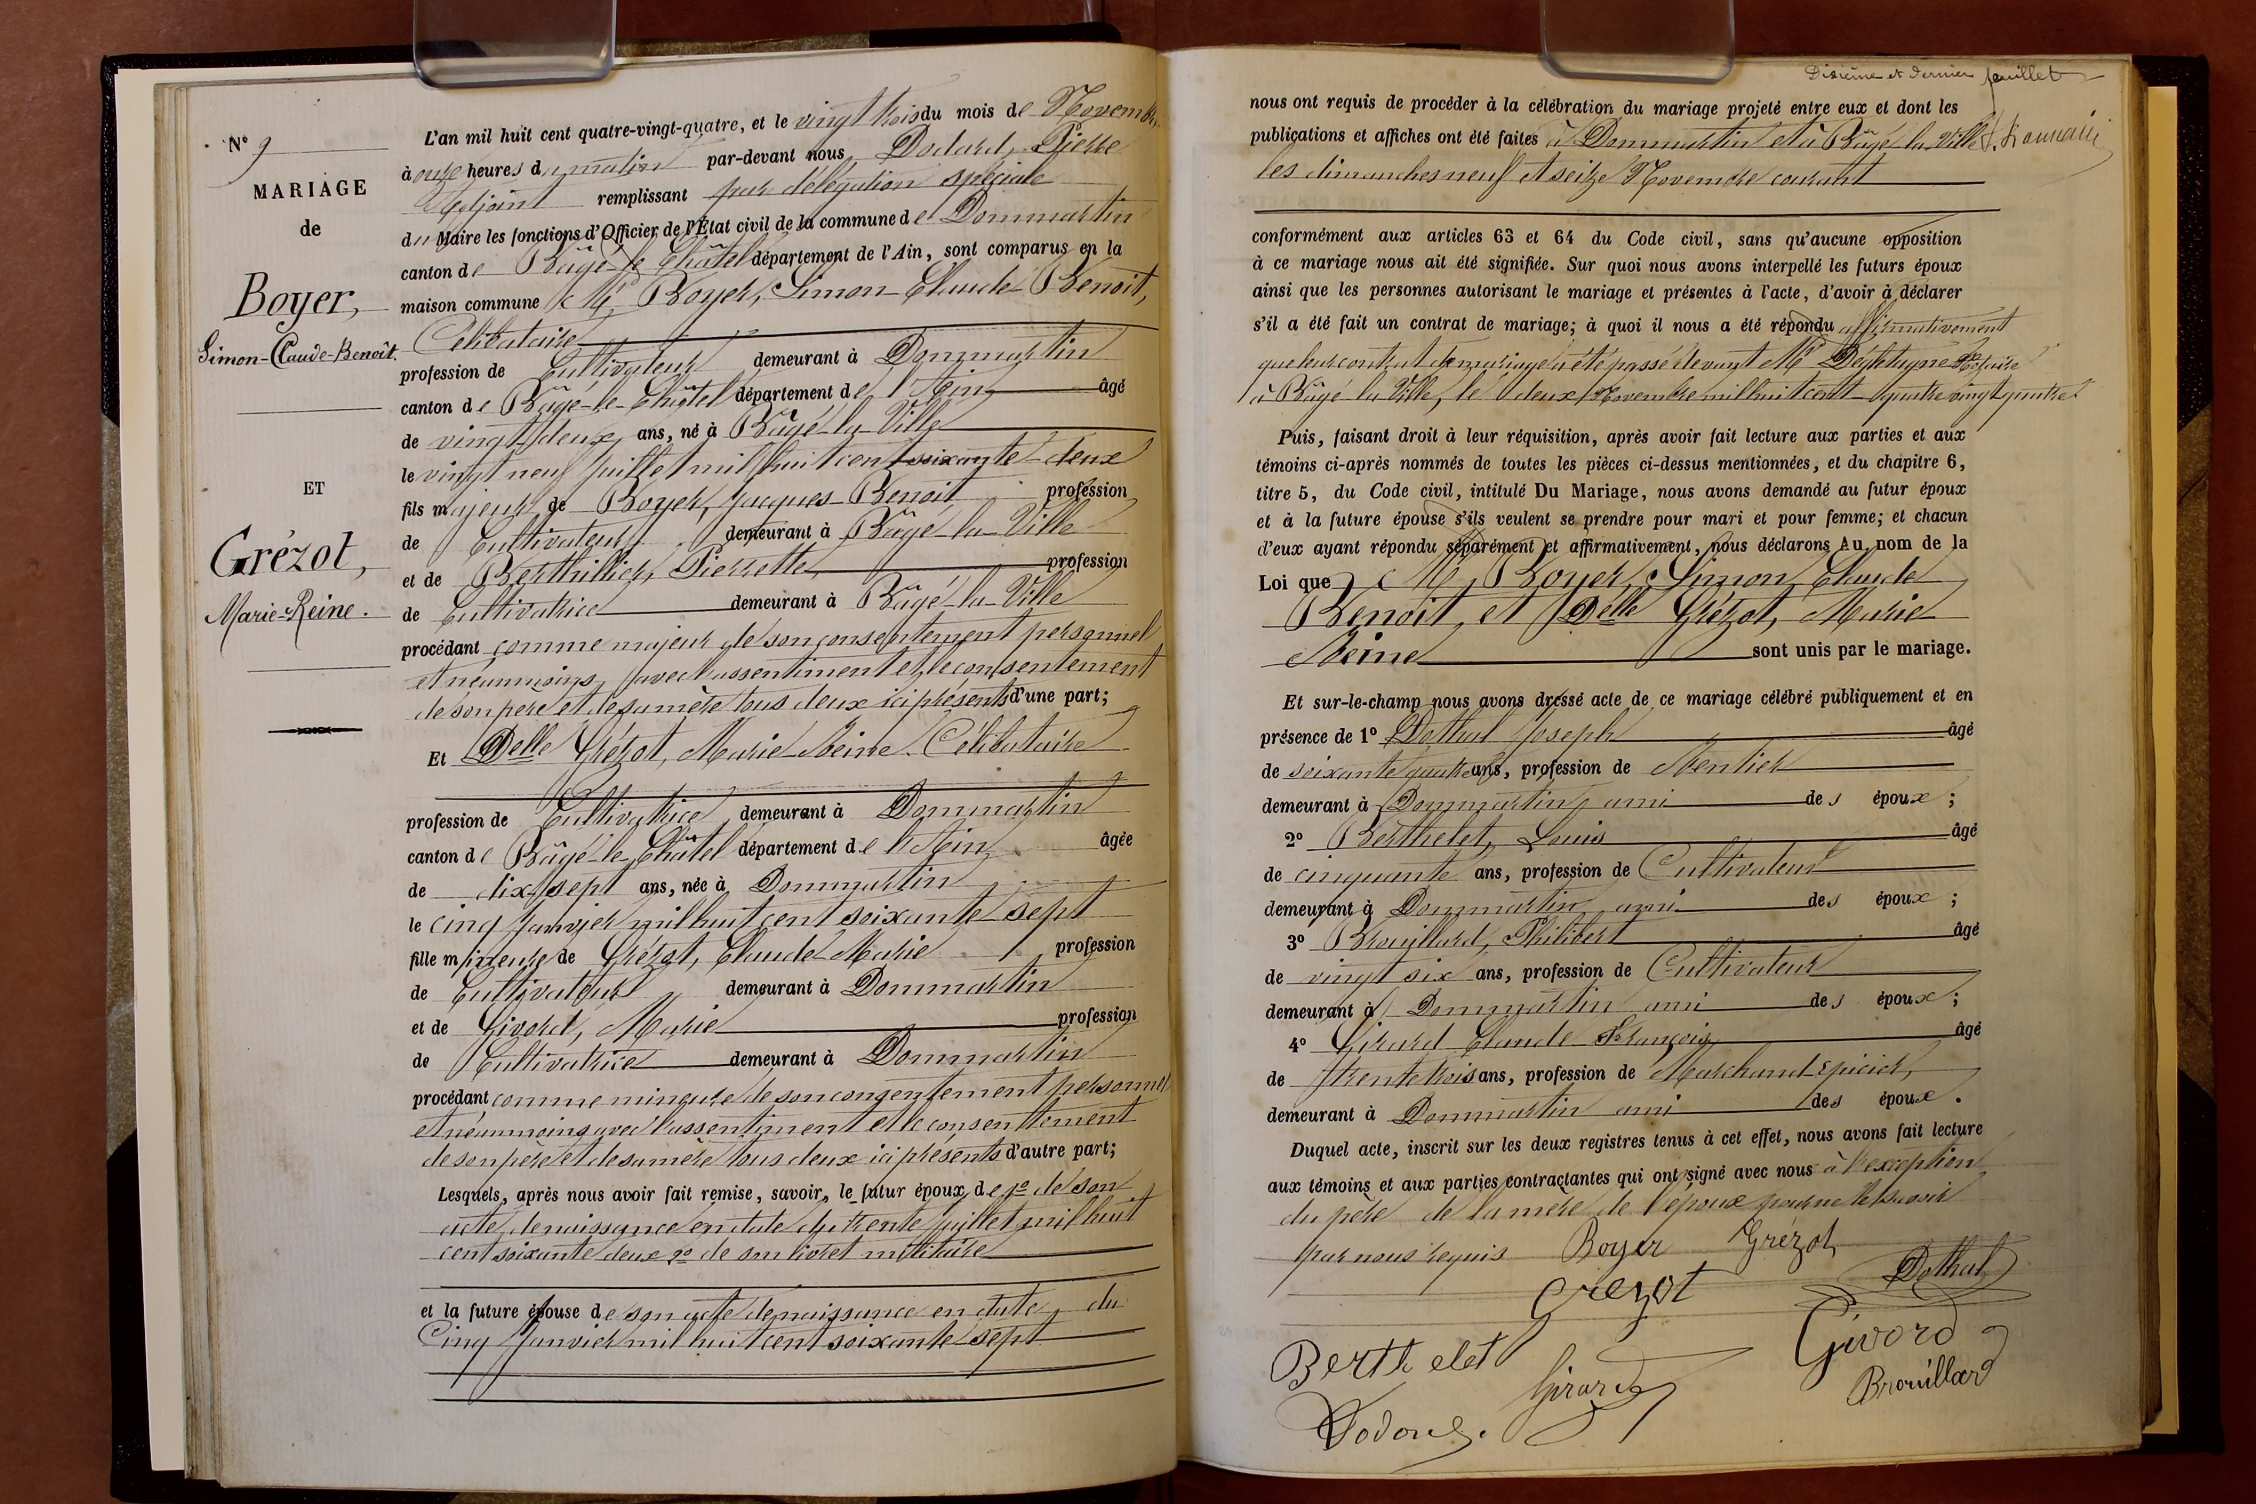 N° 9
MARIAGE
de
Boyer,
Simon-Claude-Benoît.
ET
Grézot,
Marie-Reine.
L'an mil huit cent quatre-vingt-quatre, et le vingt trois du mois de Novembre,
à onze heures du matin par-devant nous Dodard, Pierre
Adjoint remplissant par délégation spéciale
du Maire les fonctions d'Officier de l'État civil de la commune de Dommartin
canton de Bâgé-le-Châtel département de l'Ain, sont comparus en la
maison commune Mr Boyer, Simon-Claude Benoit,
Célibataire
profession de Cultivateur demeurant à Dommartin
canton de Bâgé-le-Châtel département de l'Ain âgé
de vingt-deux ans, né à Bâgé-la-Ville
le vingt neuf juillet mil huit cent soixante-deux
fils majeur de Boyer, Jacques-Benoit profession
de Cultivateur demeurant à Bâgé-la-Ville
et de Berthillier, Pierrette profession
de Cultivatrice demeurant à Bâgé-la-Ville
procédant comme majeur de son consentement personnel
et néanmoins avec l'assentiment et le consentement
de son père et de sa mère tous deux ici présents d'une part;
Et Delle Grézot, Marie Reine Célibataire
profession de Cultivatrice demeurant à Dommartin
canton de Bâgé-le-Châtel département de l'Ain âgée
de dix-sept ans, née à Dommartin
le cinq janvier mil huit cent soixante sept
fille mineure de Grézot, Claude Marie profession
de Cultivateur demeurant à Dommartin
et de Givord, Marie profession
de Cultivatrice demeurant à Dommartin
procédant comme mineure de son consentement personnel
et néanmoins avec l'assentiment et le consenttement
de son père et de sa mère tous deux ici présents d'autre part;
Lesquels, après nous avoir fait remise, savoir, le futur époux de 1° de son
acte de naissance en date du trente juillet mil huit
cent soixante deux 2° de son livret militaire
et la future épouse de son acte de naissance en date du
Cinq Janvier mil huit cent soixante sept
Dixième et dernier feuillet
nous ont requis de procéder à la célébration du mariage projeté entre eux et dont les
publications et affiches ont été faites à Dommartin et à Bâgé la Ville
les dimanches neuf et seize Novembre courant
conformément aux articles 63 et 64 du Code civil, sans qu'aucune opposition
à ce mariage nous ait été signifiée. Sur quoi nous avons interpellé les futurs époux
ainsi que les personnes autorisant le mariage et présentes à l'acte, d'avoir à déclarer
s'il a été fait un contrat de mariage; à quoi il nous a été répondu affirmativement
que leur contrat de mariage a été passé devant Me Notaire
à Bâgé-la-Ville, le deux Novembre mil huit cent quatre vingt quatre
Puis, faisant droit à leur réquisition, après avoir fait lecture aux parties et aux
témoins ci-après nommés de toutes les pièces ci-dessus mentionnées, et du chapitre 6,
titre 5, du Code civil, intitulé Du Mariage, nous avons demandé au futur époux
et à la future épouse s'ils veulent se prendre pour mari et pour femme; et chacun
d'eux ayant répondu séparément et affirmativement, nous déclarons Au nom de la
Loi que Mr Boyer, Simon, Claude
Benoit, et Delle Grézot, Marie
Reine sont unis par le mariage.
Et sur-le-champ nous avons dressé acte de ce mariage célébré publiquement et en
présence de 1° Dothal Joseph âgé
de soixante quatre ans, profession de Rentier
demeurant à Dommartin, ami des époux;
2° Berthelet, Louis âgé
de cinquante ans, profession de Cultivateur
demeurant à Dommartin ami des époux;
3° Brouillard, Philibert âgé
de vingt six ans, profession de Cultivateur
demeurant à Dommartin ami des époux;
4° Girard Claude François âgé
de trente trois ans, profession de Marchand Epicier,
demeurant à Dommartin ami des époux.
Duquel acte, inscrit sur les deux registres tenus à cet effet, nous avons fait lecture
aux témoins et aux parties contractantes qui ont signé avec nous à l'exception
du père de la mère de l'époux pour ne le savoir
par nous requis Boyer Grézot
Grezot Dothal
Berthelet Girard Givord
Brouillard
Dodard